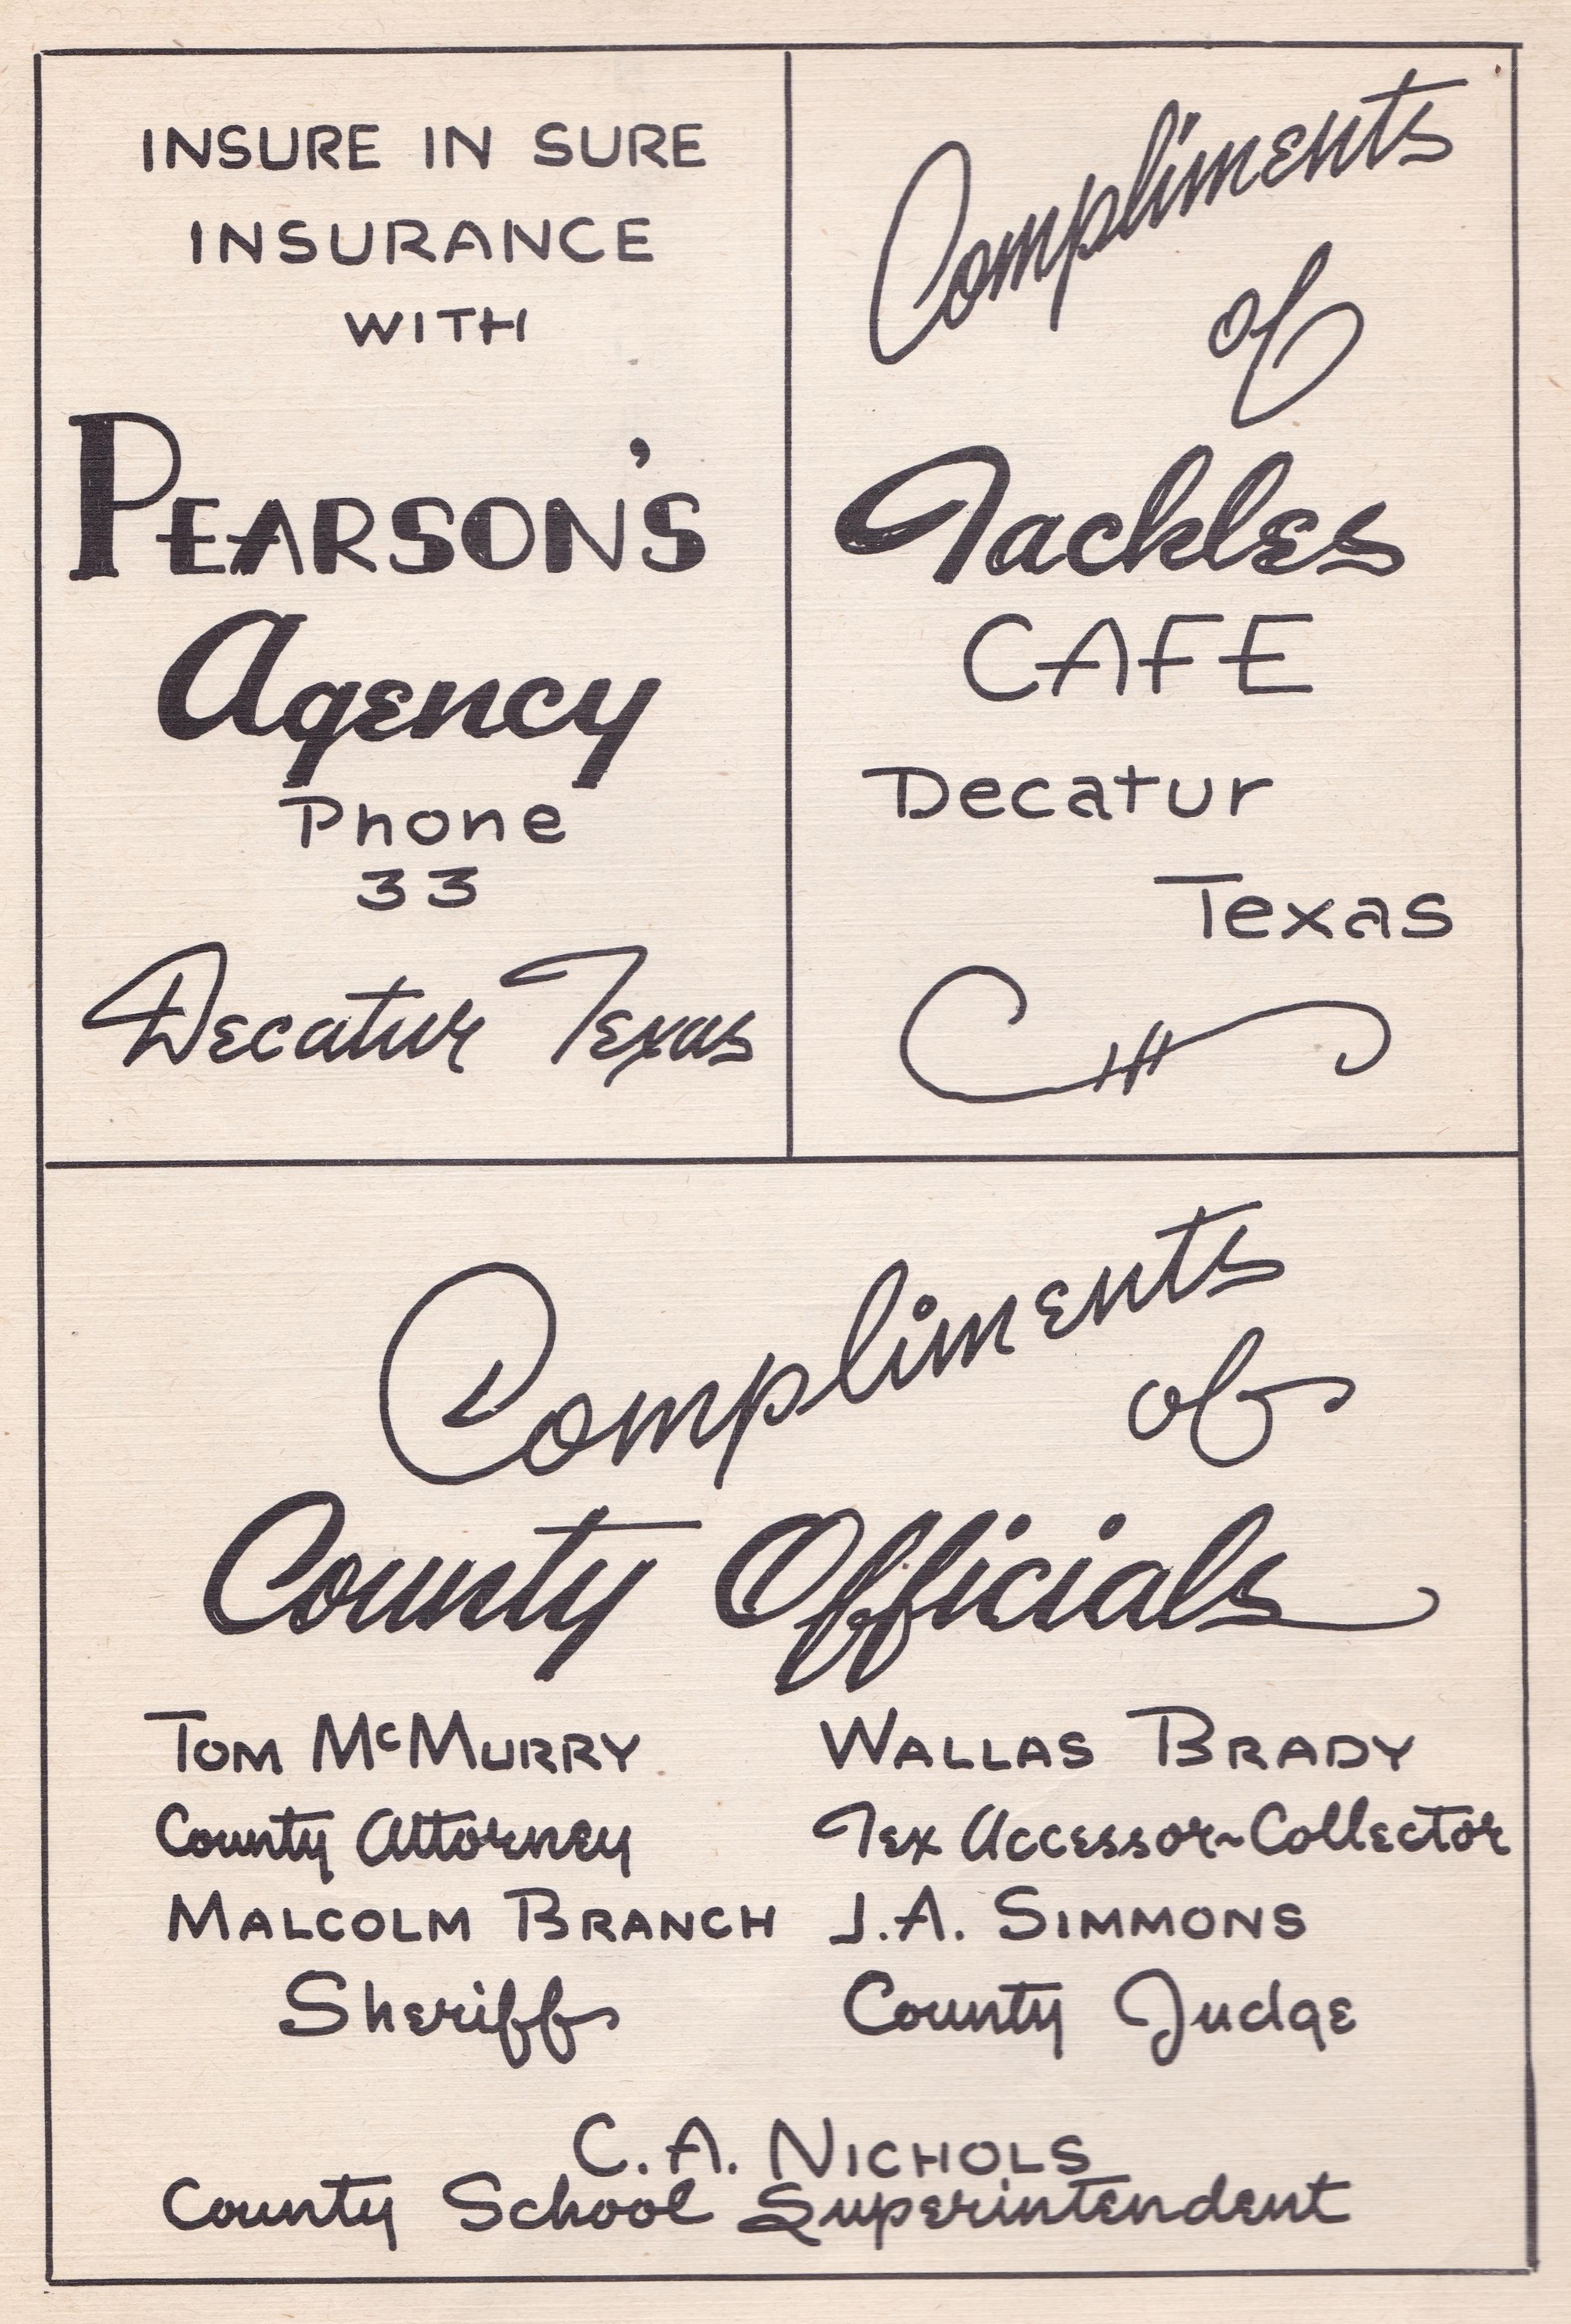 INSURE IN SURE
INSURANCE
WITH
PEARSON'S
Agency
Phone
33
Decatur Texas
Compliments
of
Tackles
CAFE
Decatur
Texas
Compliments
of
County Officials
TOM McMURRY
County Attorney
MALCOLM BRANCH
Sheriff
WALLAS BRADY
Tex Accessor-Collector
J.A. SIMMONS
County Judge
C.A. NICHOLS
County School Superintendent